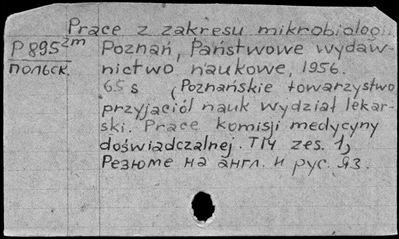 Prace z zakresu mikrobiolog...
P895 2m Poznań, Państwowe wydaw-
польск. nictwo naukowe, 1956.
65 s (Poznańskie towarzystwo
przyjaciól nauk wydział lekar-
ski. Prace komisji medycyny
doświadczalnej. T14 zes. 1)
Резюме на англ. и рус. яз.